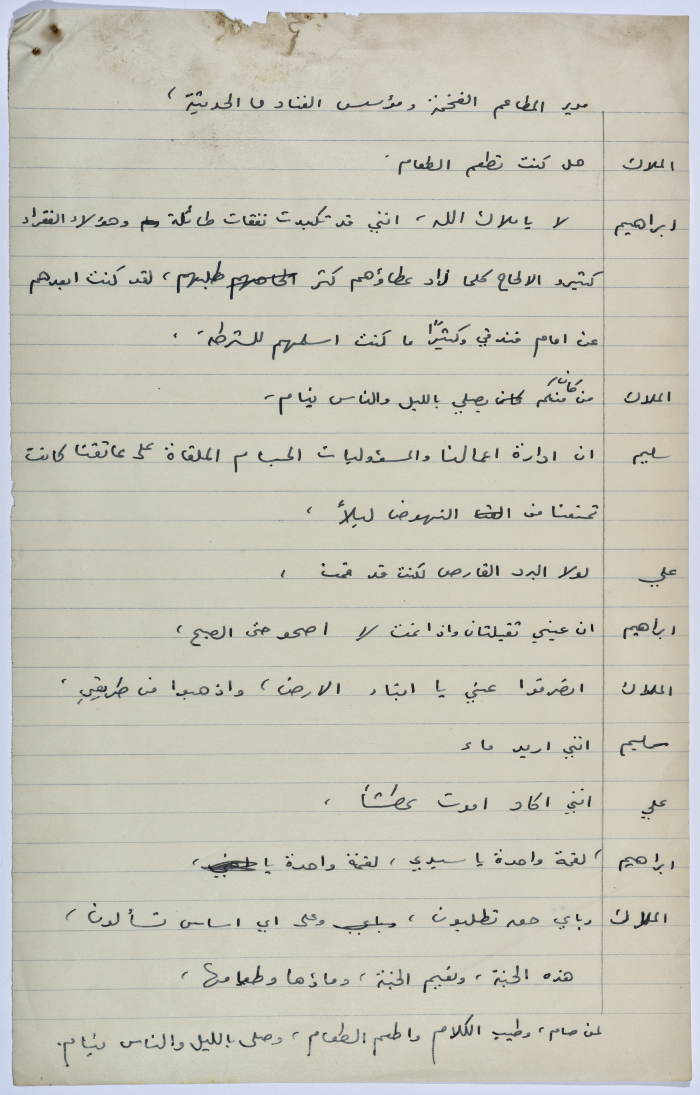 مدير المطاعم الفخمة ومؤسس الفنادق الحديثة ،
الملاك هل كنت تطعم الطعام .
ابراهيم لا يا ملاك الله ، انني قد تكبدت نفقات طائلة وهؤلاء الفقراء
كثيرو الالحاح كلما زاد عطاؤهم كثر طلبهم ، لقد كنت ابعدهم
عن امام فندقي وكثيرًا ما كنت اسلمهم للشرطة .
الملاك من منكم كان يصلي بالليل والناس نيام ،
سليم ان ادارة اعمالنا والمسؤوليات الجسام الملقاة على عاتقنا كانت
تمنعنا من النهوض ليلاً ،
علي لولا البرد القارص لكنت قد قمت ،
ابراهيم ان عيني ثقيلتان واذا نمت لا اصحو حتى الصبح ،
الملاك انصرفوا عني يا ابناء الارض ، واذهبوا من طريقي ،
سليم انني اريد ماء
علي انني اكاد اموت عطشاً ،
ابراهيم لقمة واحدة يا سيدي ، لقمة واحدة يا
الملاك وباي حق تطلبون ، وعلى اي اساس تسألون ،
هذه الجنة ، ونعيم الجنة ، وماؤها وطعامها ،
لمن صام ، وطيب الكلام واطعم الطعام ، وصلى بالليل والناس نيام .